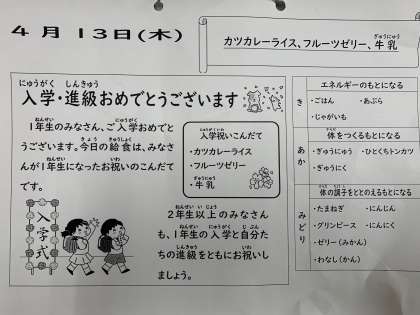 4月13日(木)
カツカレーライス、フルーツゼリー、牛乳
ぎゅうにゅう
にゅうがく しんきゅう
入学・進級おめでとうございます
ねんせい にゅうがく
1年生のみなさん、ご入学おめでと
きゅうしょく
うございます。今日の給食は、みなさ
ねんせい いわ
んが1年生になったお祝いのこんだて
です。
にゅうがくいわ
入学祝いこんだて
・カツカレーライス
・フルーツゼリー
ぎゅうにゅう
・牛乳
入学式
ねんせい いじょう
2年生以上のみなさん
ねんせい にゅうがく じぶん
も、1年生の入学と自分た
しんきゅう いわ
ちの進級をともにお祝いし
ましょう。
き
エネルギーのもとになる
・ごはん ・あぶら
・じゃがいも
あか
体をつくるもとになる
・ぎゅうにゅう ・ひとくちトンカツ
・ぎゅうにく
みどり
体の調子をととのえるもとになる
・たまねぎ ・にんじん
・グリンピース ・にんにく
・ゼリー(みかん)
・わなし(かん)